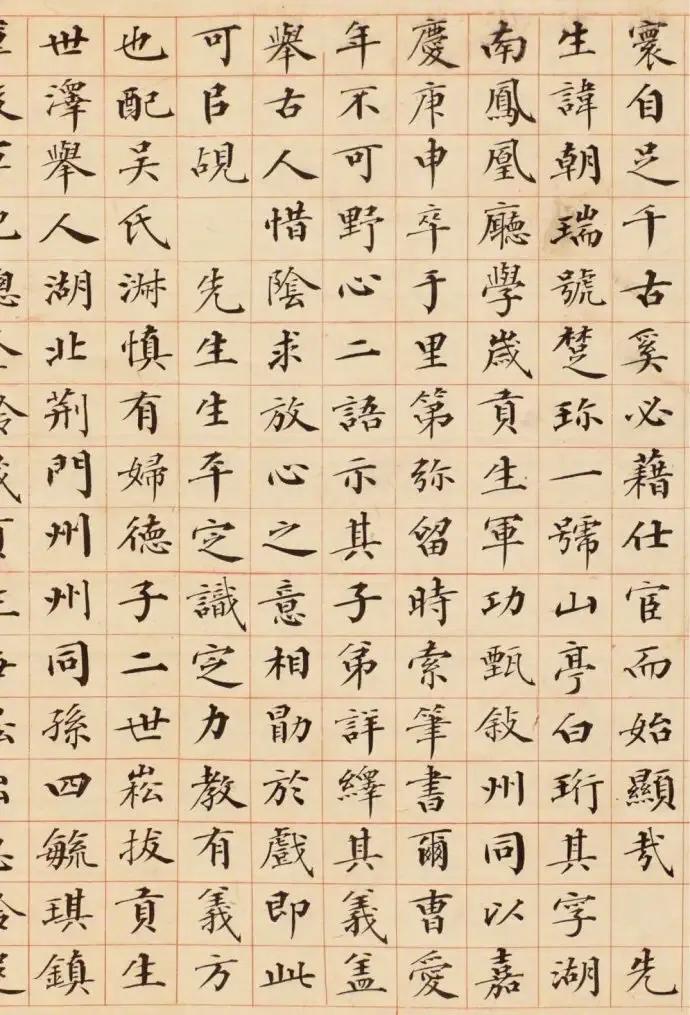 寰自足千古奚必藉仕宦而始顯哉 先
生諱朝瑞號楚珎一號山亭白珩其字湖
南鳳凰廳學歲貢生軍功甄敍州同以嘉
慶庚申卒于里第弥留時索筆書爾曹愛
年不可野心二語示其子弟詳繹其義盖
舉古人惜陰求放心之意相勖於戲即此
可㠯覘 先生生平定識定力教有義方
也配吴氏淋慎有婦德子二世崧拔貢生
世澤舉人湖北荆門州州同孫四毓琪鎮